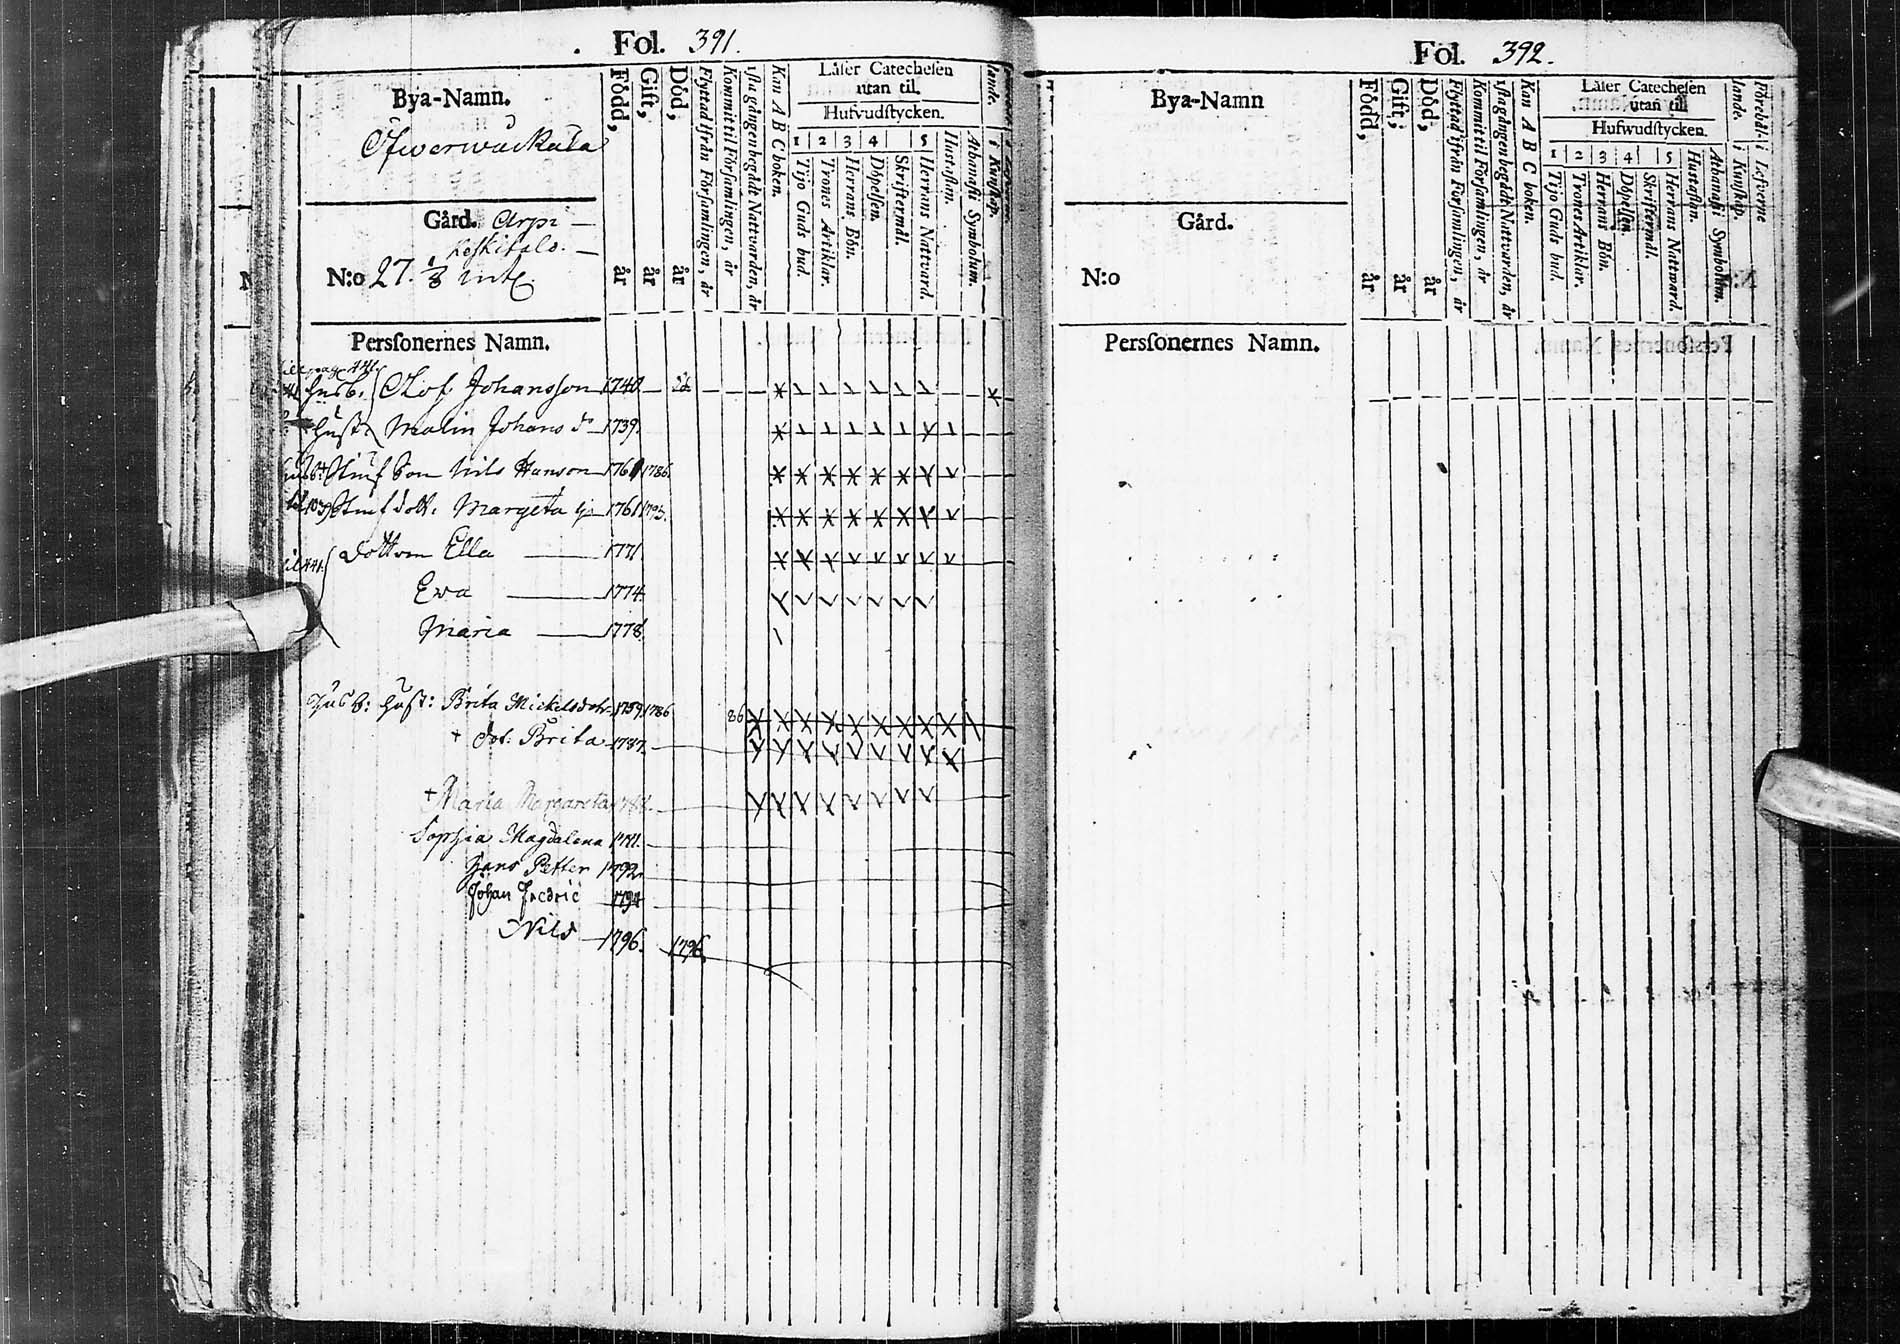 Fol. 391.
Bya-Namn.
Gård. Arpi
N:o 27. 1/8 mtl.
Född, år
Gift, år
Död, år
Flyttad ifrån Församlingen, år
Kommit til Församlingen, år
1sta gången begådt Nattvarden, år
Kan A B C boken.
Låser Catechesen
utan til.
Hufvudstycken.
1 2 3 4 5
Tijo Guds bud.
Trones Artiklar.
Herrans Bön.
Döpelsen.
Skriftermål.
Herrans Nattvard.
Hustaflan.
Athanasii Symbolum.
i Kunskap.
Personernes Namn.
441
Husb. Olof Johansson 1740
Hust. Malin Johans dr 1739.
Nils Hanson 176 1786.
Margeta 1761 1793.
Dottren Ella 1771
Ewa 1774.
Maria 1778.
Husb: Hust: Brita Mickelsdotr 1759 1786 86
+ dot: Brita 1787.
+ Maria Margareta
Sophia Magdalena
Hans Petter 1792.
Johan Fredric 1794
Nils 1796. 1796.
Fol. 392.
Bya-Namn
Gård.
N:o
Född, år
Gift, år
Död, år
Flyttad ifrån Församlingen, år
Kommit til Församlingen, år
1sta gången begådt Nattvarden, år
Kan A B C boken.
Låser Catechesen
utan til
Hufwudstycken.
1 2 3 4 5
Tijo Guds bud.
Trones Artiklar.
Herrans Bön.
Döpelsen.
Skriftermål.
Herrans Nattward.
Hustaflan.
Athanasii Symbolum.
Förehållande. i Kunskap.
i Lefverne
Personernes Namn.